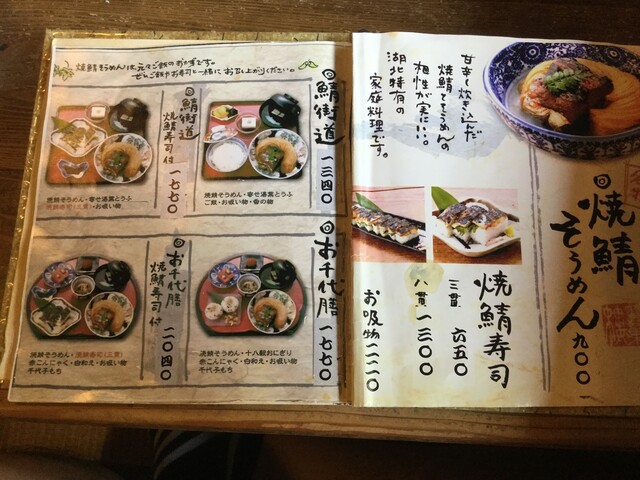 焼鯖そうめん 九〇〇
甘辛く炊き込んだ
焼鯖とそうめんの
相性が実にいい。
湖北特有の
家庭料理です。
焼鯖寿司
三貫 六五〇
八貫 一三〇〇
お吸物 二二〇
焼鯖そうめんは、元々ご飯のおかずです。
ぜひご飯やお寿司と一緒にお召し上がりください。
鯖街道 一三四〇
焼鯖そうめん・幸せ湯葉とうふ
ご飯・お吸い物・香の物
鯖街道
焼鯖寿司付 一七七〇
焼鯖そうめん・幸せ湯葉とうふ
焼鯖寿司(三貫)・お吸い物
お千代膳 一七七〇
焼鯖そうめん・十八穀おにぎり
赤こんにゃく・白和え・お吸い物
千代子もち
お千代膳
焼鯖寿司付 二〇四〇
焼鯖そうめん・焼鯖寿司(三貫)
赤こんにゃく・白和え・お吸い物
千代子もち